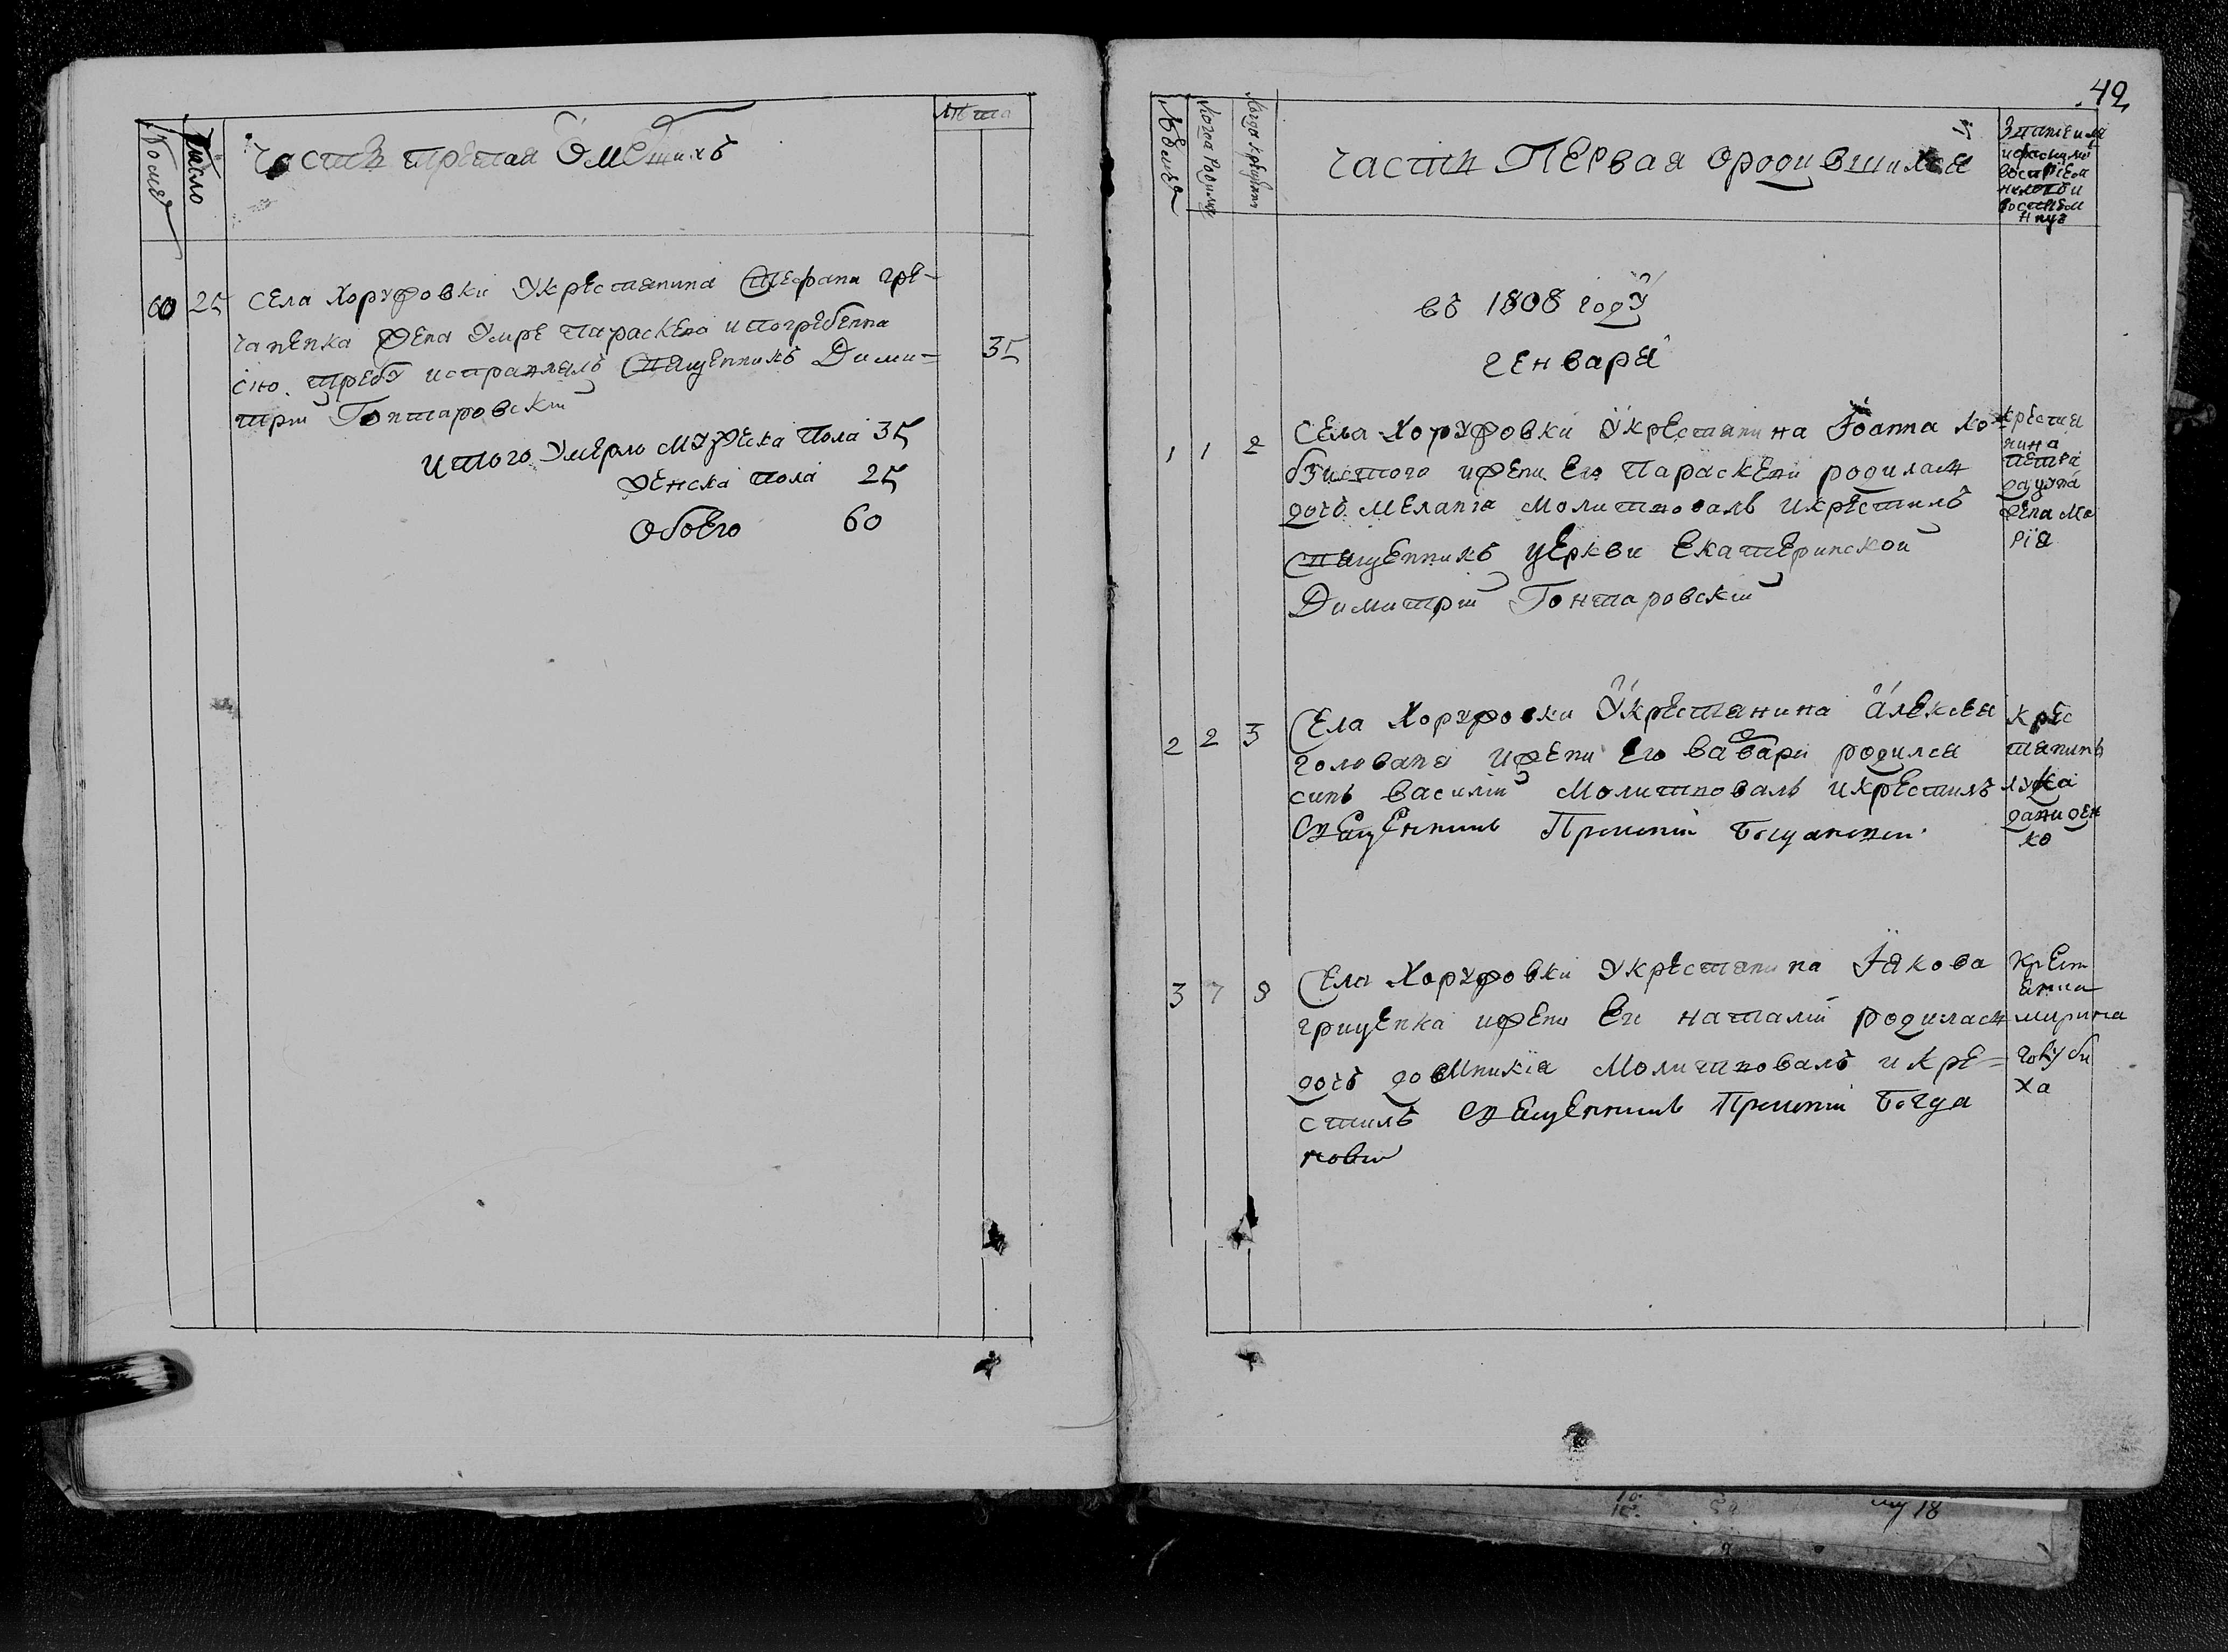 Число
Часть третая О умершихъ
Лѣта
60 25 Села Хоружовки Укрестянина Стефана гре-
чаненка жена Умре Параскева и погребенна
сию требу исправлялъ Священникъ Дими-
35
трий Гонтаровскій
Итого Умерло Мужеска пола 35
Женска пола 25
Обоего 60
42
Когда Родился
Когда Крещенъ
Часть Первая о родившихся
въ 1808 году
Генваря
1 1 2 Села Хоружовки Укрестянина Іоанна Ко-
бзистого ижени Его Параскеви родилась
дочь Меланія Молитвовалъ Икрестилъ
Священникъ Церкви Екатеринской
Димитрий Гонтаровскій
крестя
нина
Петра
жена Ма
рія
2 2 3 Села Хоружовки Укрестянина Алексея
голована ижени Его Варвари родился
синъ Василій Молитвовалъ Икрестилъ
Священникъ
Крес
тянинъ
Лука
данилен
ко
3 7 8 Села Хоружовки Укрестянина Іякова
гриценка ижени Его наталіи родилась
дочь домникія Молитвовалъ и кре-
стилъ Священникъ
Крест
янка
марина
ха